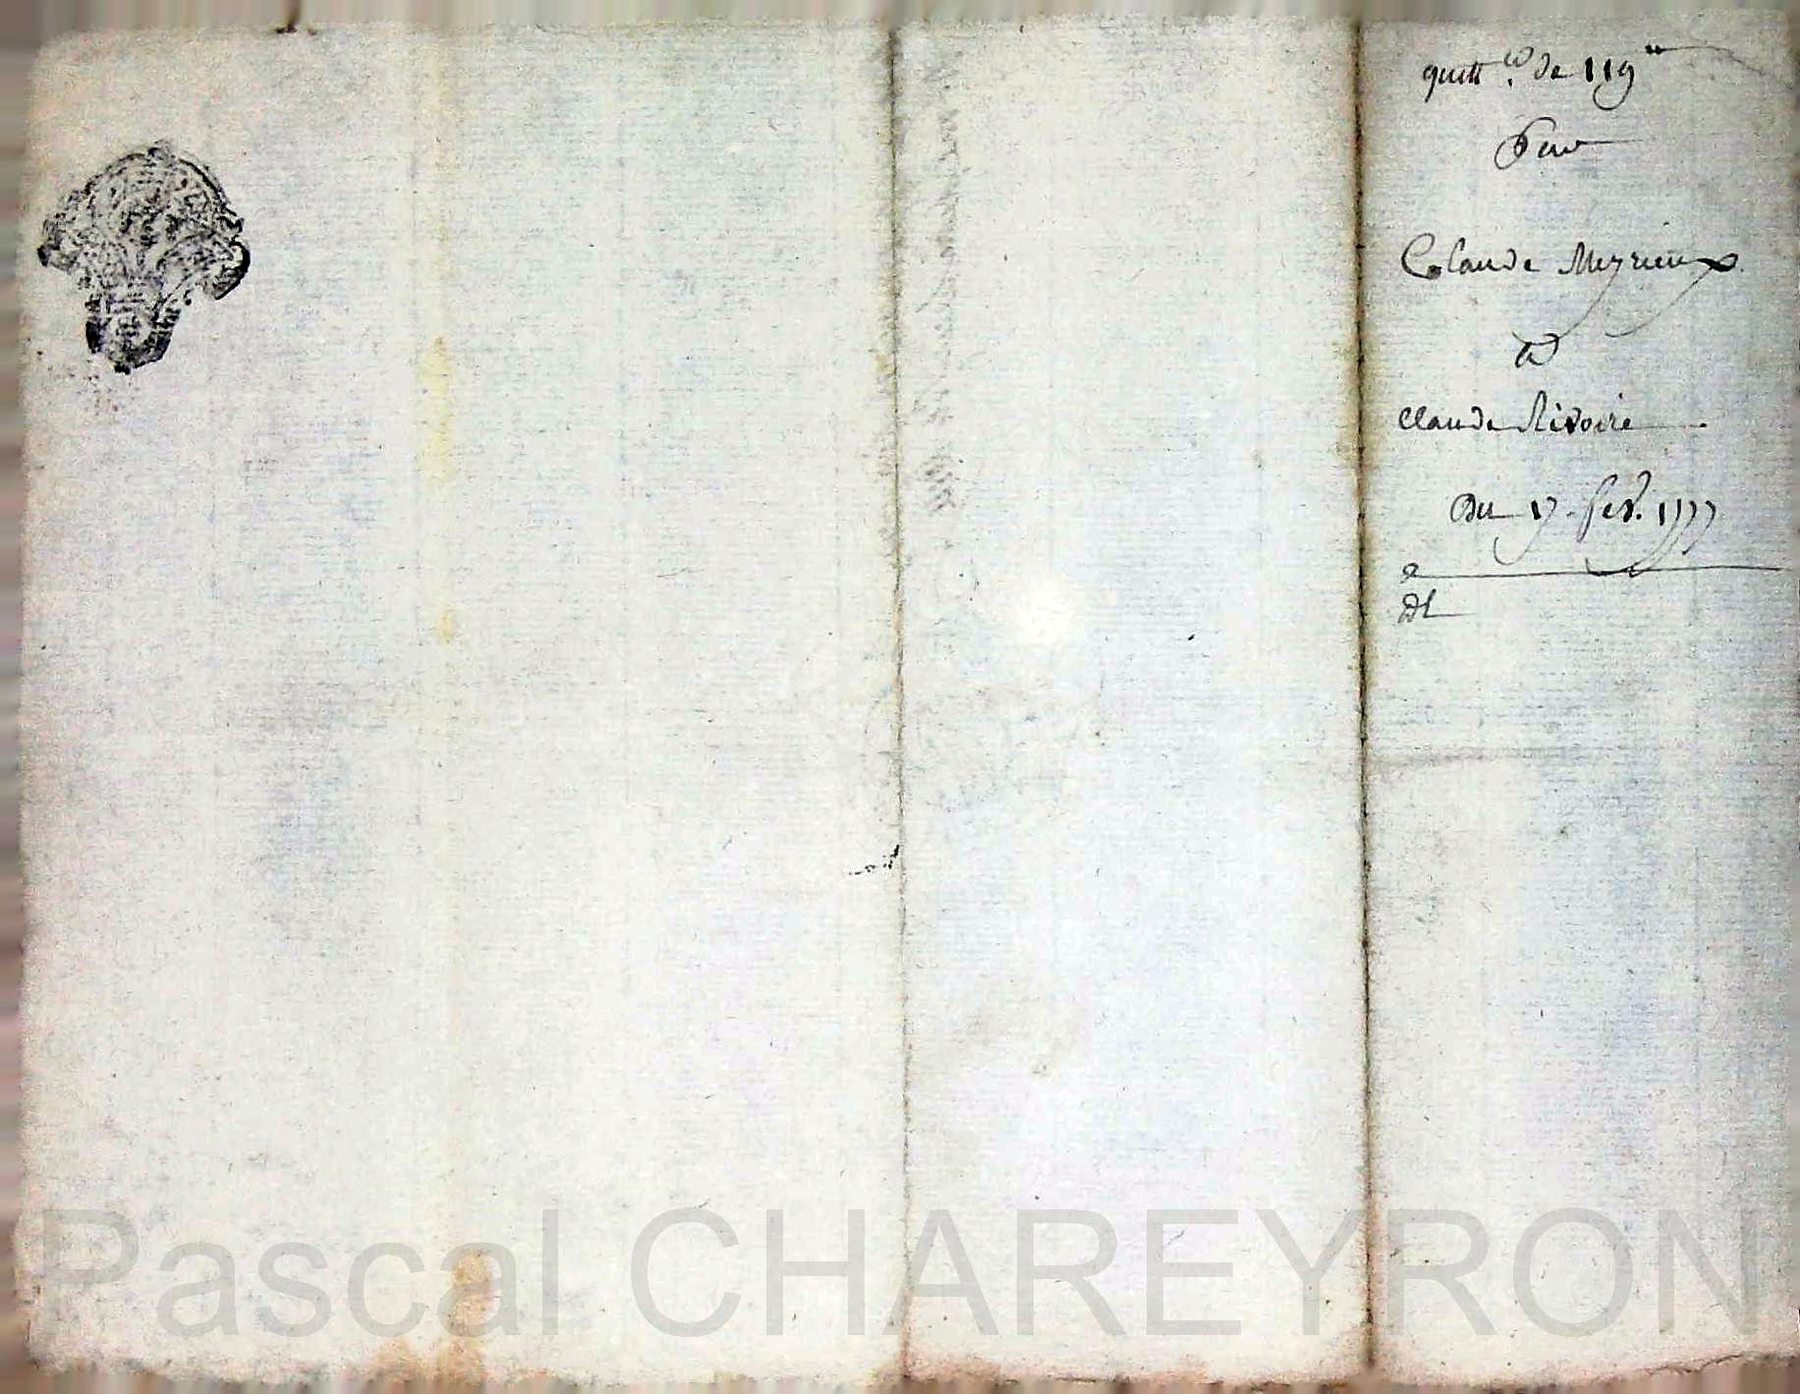 quitt.ce de 119 ₶
Pour
Claude Meyrieux.
A
Claude Rivoire.
Du 17. fev. 1777
Dl
Pascal CHAREYRON